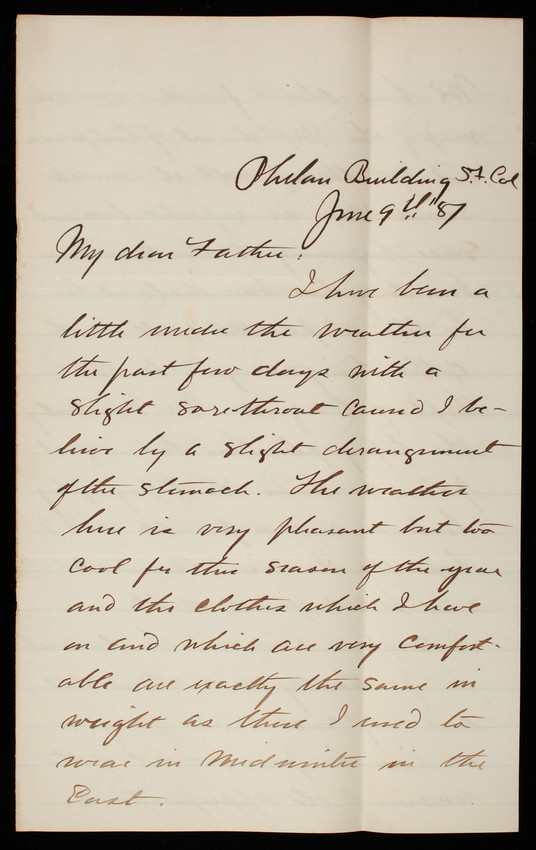 Phelan Building S.F. Cal
June 9th '87
My dear Father:
I have been a
little under the weather for
the past few days with a
slight sore throat caused I be-
lieve by a slight derangement
of the stomach. The weather
here is very pleasant but too
cool for this season of the year
and the clothes which I have
on and which are very comfort-
able are exactly the same in
weight as those I used to
wear in midwinter in the
East.